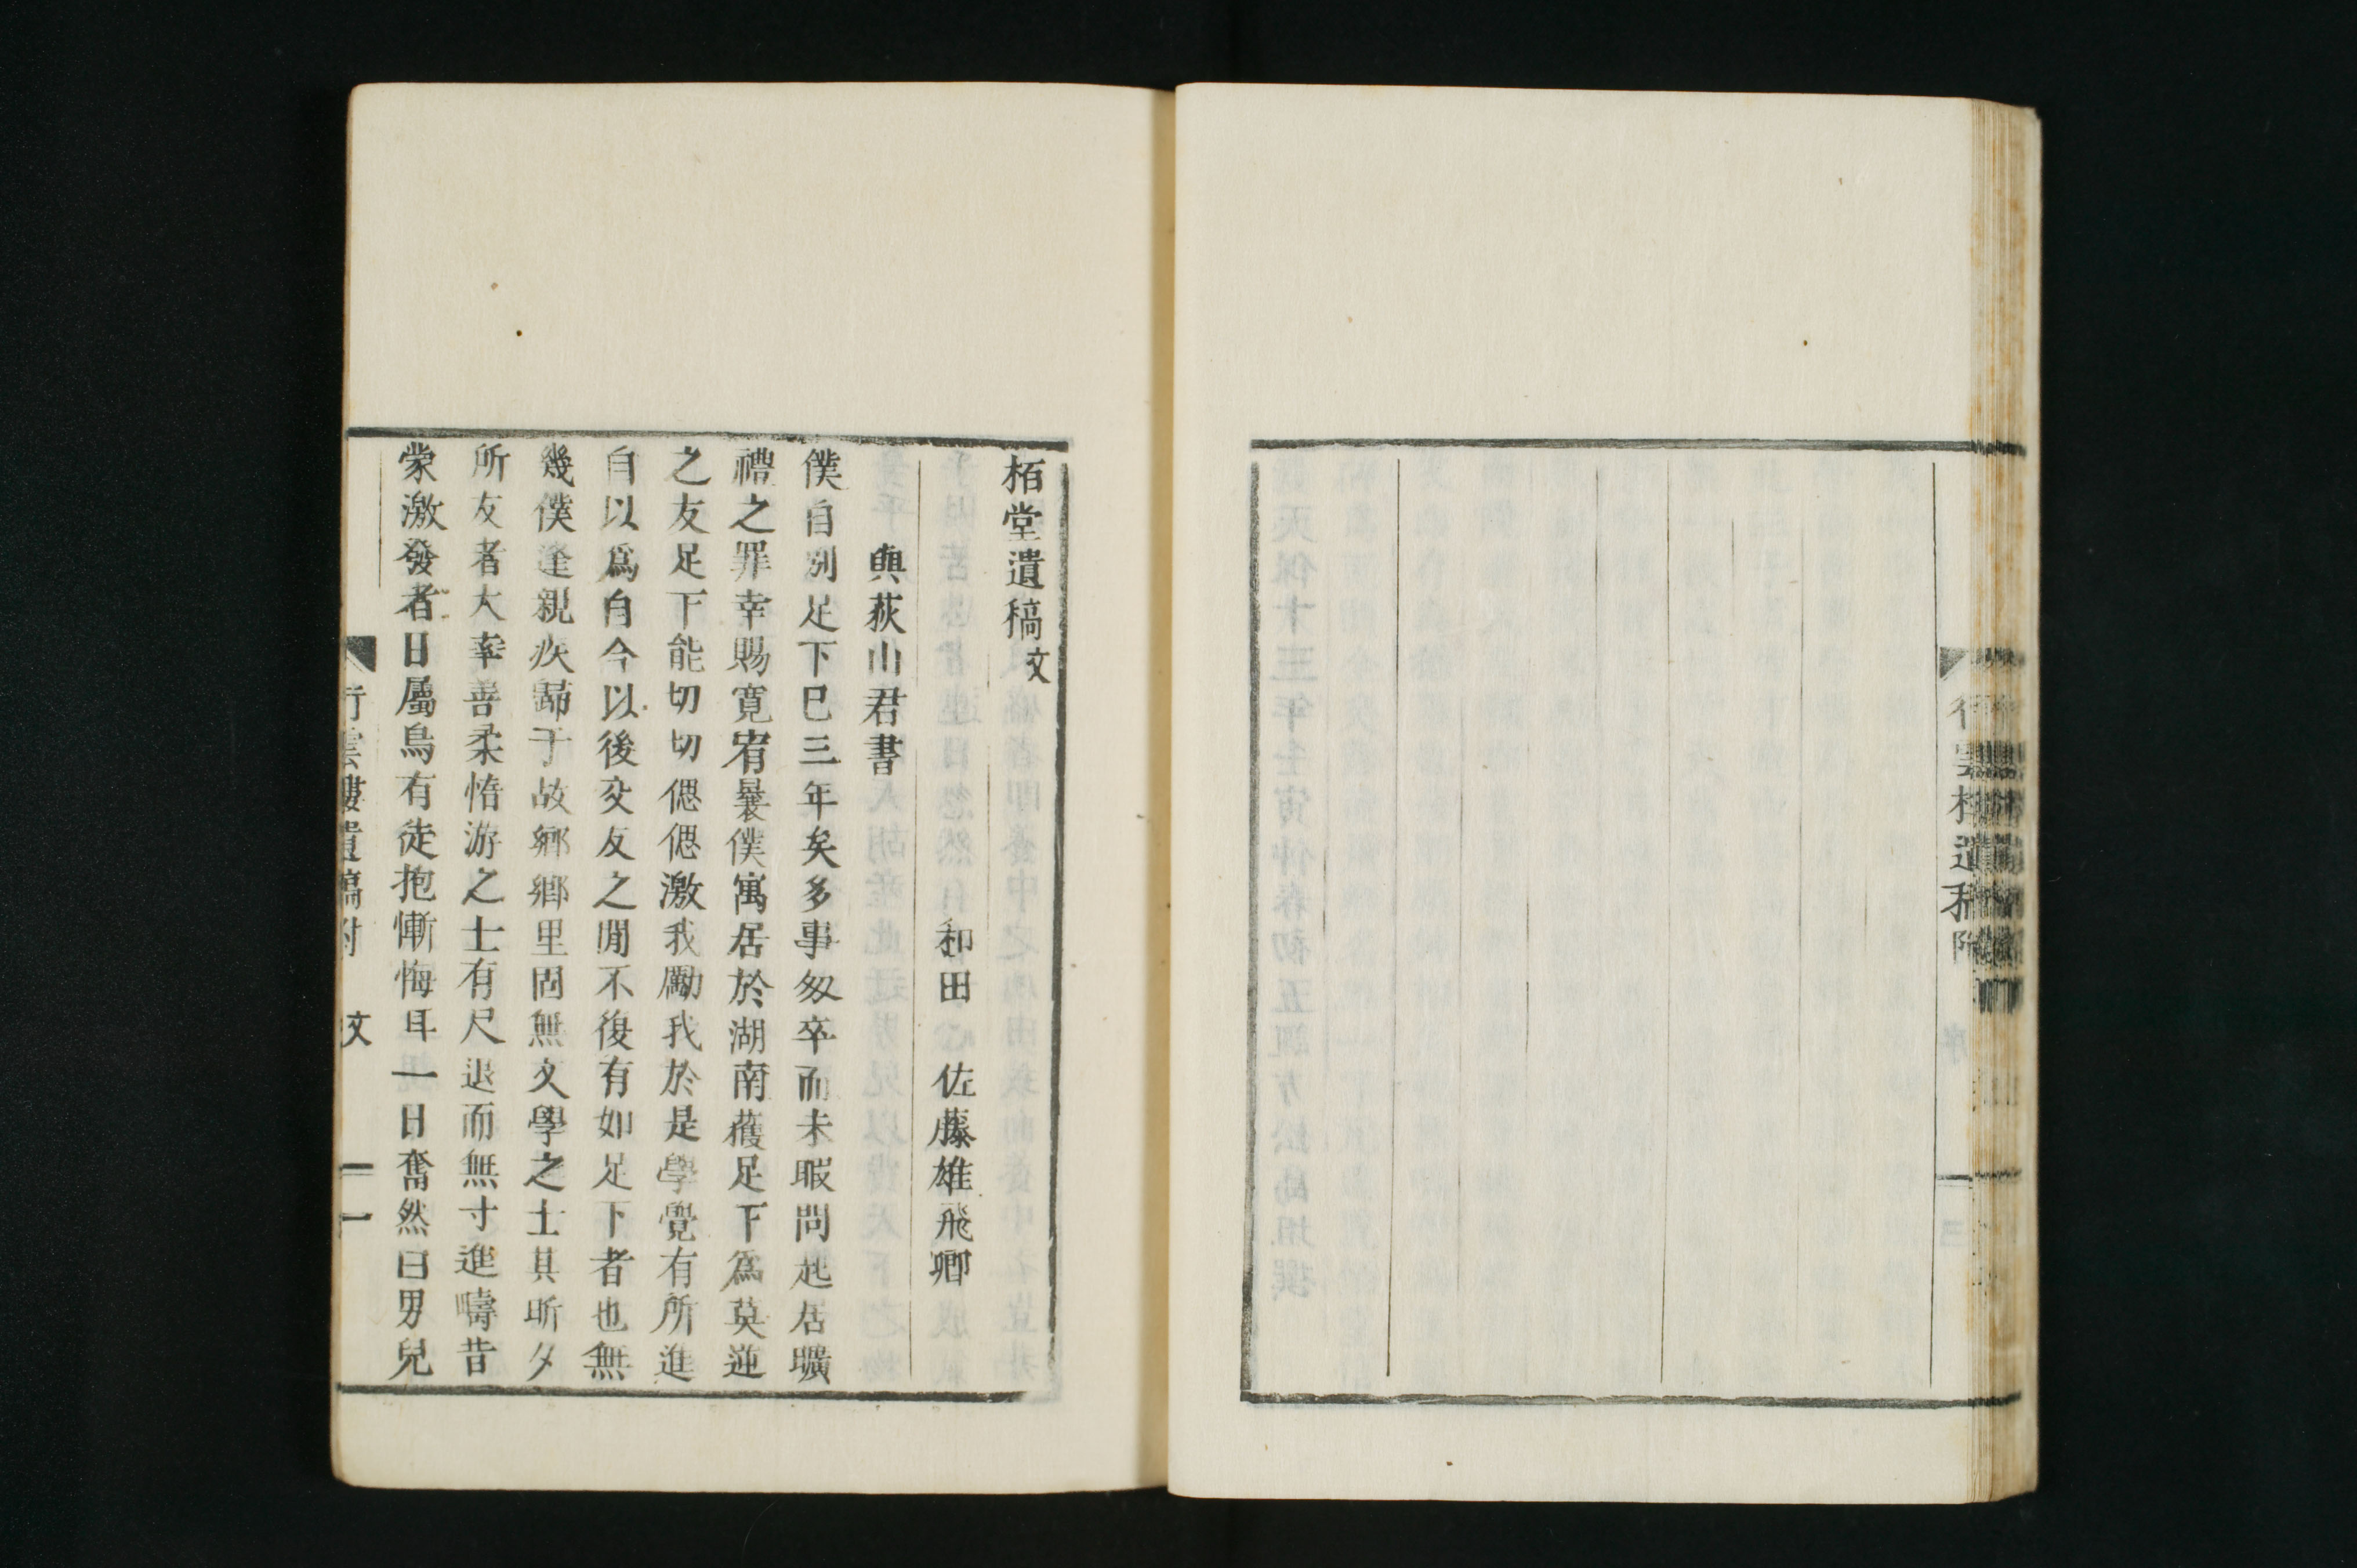 栢堂遺稿文
和田 佐藤雄飛卿
與荻山君書
僕自別足下巳三年矣多事匆卒而未暇問起居曠
禮之罪幸賜寛宥曩僕寓居於湖南蒦足下爲莫逆
之友足下能切切偲偲激我勵我於是學覺有所進
自以爲自今以後交友之間不復有如足下者也無
幾僕逢親疾歸于故鄉鄉里固無文學之士其昕夕
所友者大率善柔惰游之士有尺退而無寸進疇昔
蒙激發者日屬烏有徒抱慚悔耳一日奮然曰男兒
行雲樓遺稿附 文 一